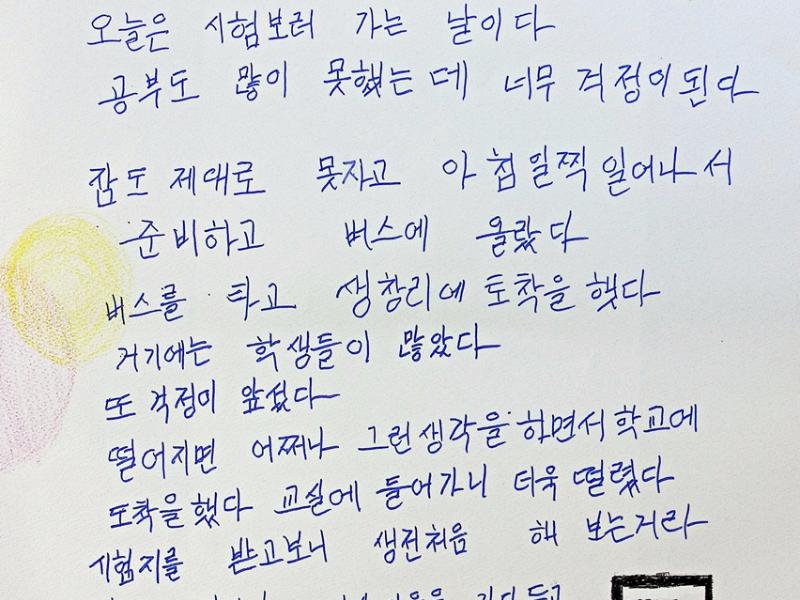 오늘은 시험보러 가는 날이다
공부도 많이 못했는데 너무 걱정이된다
잠도 제대로 못자고 아침일찍 일어나서
준비하고 버스에 올랐다
버스를 타고 생창리에 도착을 했다
거기에는 학생들이 많았다
또 걱정이 앞섰다
떨어지면 어쩌나 그런생각을 하면서 학교에
도착을 했다 교실에 들어가니 더욱 떨렸다
시험지를 받고보니 생전처음 해 보는거라